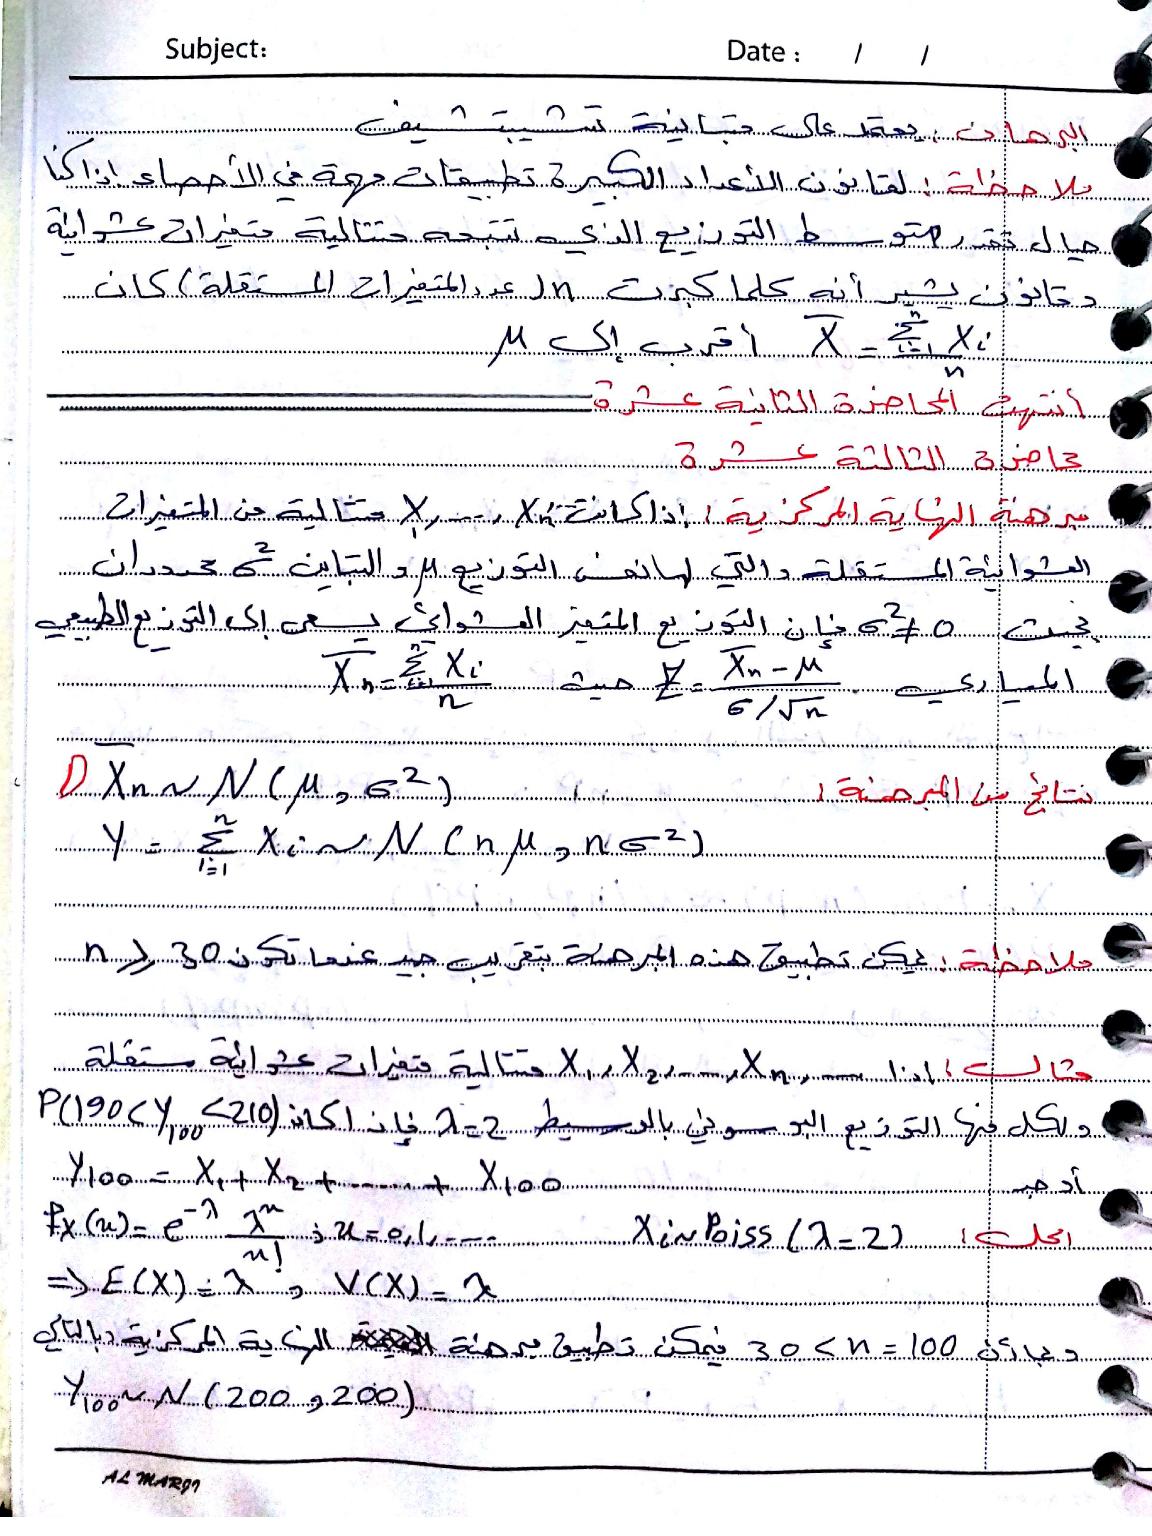 Subject: Date : / /
البرهان : يعتمد على متباينة تشيبتشيف
ملاحظة : لقانون الأعداد الكبيرة تطبيقات مهمة في الأحصاء. إذا كنا
حيال تقدير متوسط التوزيع الذي تتبعه متتالية متغيرات عشوائية
وقانون يشير أنه كلما كبرت n (عدد المتغيرات المستقلة) كان
X̄ = Σ_{i=1}^{n} Xi / n أقرب إلى μ
انتهت المحاضرة الثانية عشرة
محاضرة الثالثة عشرة
مبرهنة النهاية المركزية : إذا كانت X1, ..., Xn متتالية من المتغيرات
العشوائية المستقلة والتي لها نفس التوزيع μ والتباين σ² محدودان
بحيث σ² ≠ 0 فإن التوزيع المتغير العشوائي يسعى إلى التوزيع الطبيعي
المعياري Z = (X̄n - μ) / (σ/√n) حيث X̄n = Σ_{i=1}^{n} Xi / n
نتائج من المبرهنة : 1) X̄n ~ N(μ, σ²)
Y = Σ_{i=1}^{n} Xi ~ N(nμ, nσ²)
ملاحظة : يمكن تطبيق هذه المبرهنة بتقريب جيد عندما تكون n ≥ 30
مثال : إذا X1, X2, ..., Xn, ... متتالية متغيرات عشوائية مستقلة
ولكل منها التوزيع البوسوني بالوسيط λ=2 فإذا كان P(190 < Y100 < 210)
أوجد Y100 = X1 + X2 + ...... + X100
الحل : Xi ~ Poiss(λ=2) fX(x) = e^{-λ} λ^x / x! ; x = 0, 1, ....
⇒ E(X) = λ , V(X) = λ
وبما أن 30 < n = 100 فيمكن تطبيق مبرهنة النهاية المركزية وبالتالي
Y100 ~ N(200, 200)
AL MARGI